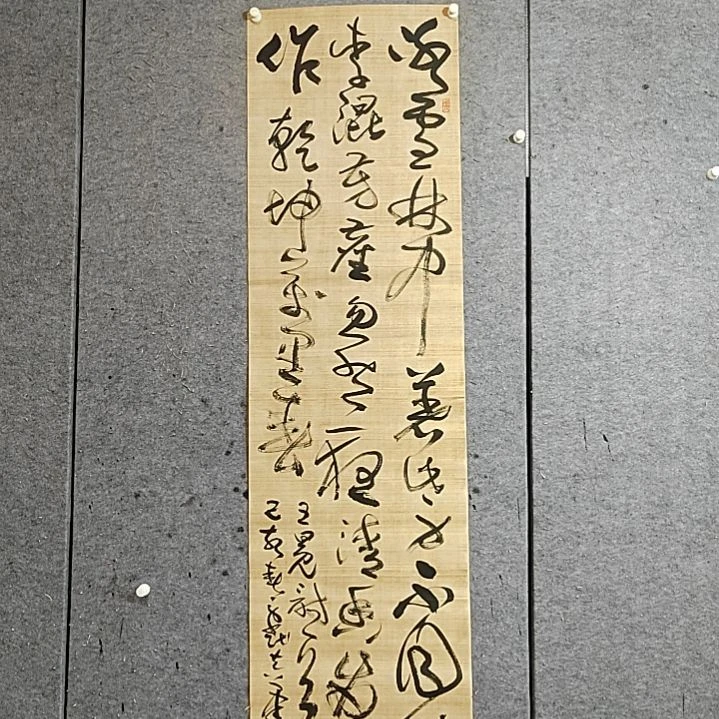 冰雪林中著此身不同
李混芳塵忽然一夜清香發
作乾坤萬里春
王冕詩
己亥春